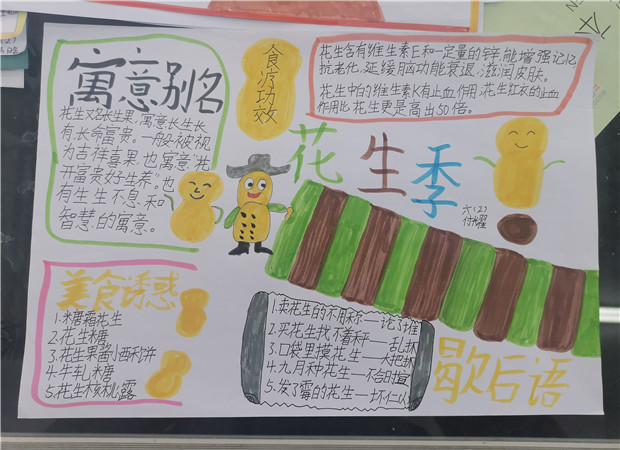 寓意别名
花生又名长生果,寓意长生长
有,长命富贵。一般被视
为吉祥喜果,也寓意“花
开富贵好生养”。也
有生生不息,和
智慧的寓意。
食疗功效
花生含有维生素E和一定量的锌,能增强记忆
抗老化,延缓脑功能衰退,滋润皮肤。
花生中的维生素K有止血作用,花生红衣的止血
作用比花生更是高出50倍。
花生季
六(2)
付耀
美食诱惑
1.糖霜花生
2.花生糖
3.花生果酱小西利饼
4.牛轧糖
5.花生核桃露
1.卖花生的不用秤
2.买花生找不着秤——乱抓
3.口袋里摸花生——大把抓
4.九月种花生——不合时宜
5.发了霉的花生——坏仁
歇后语